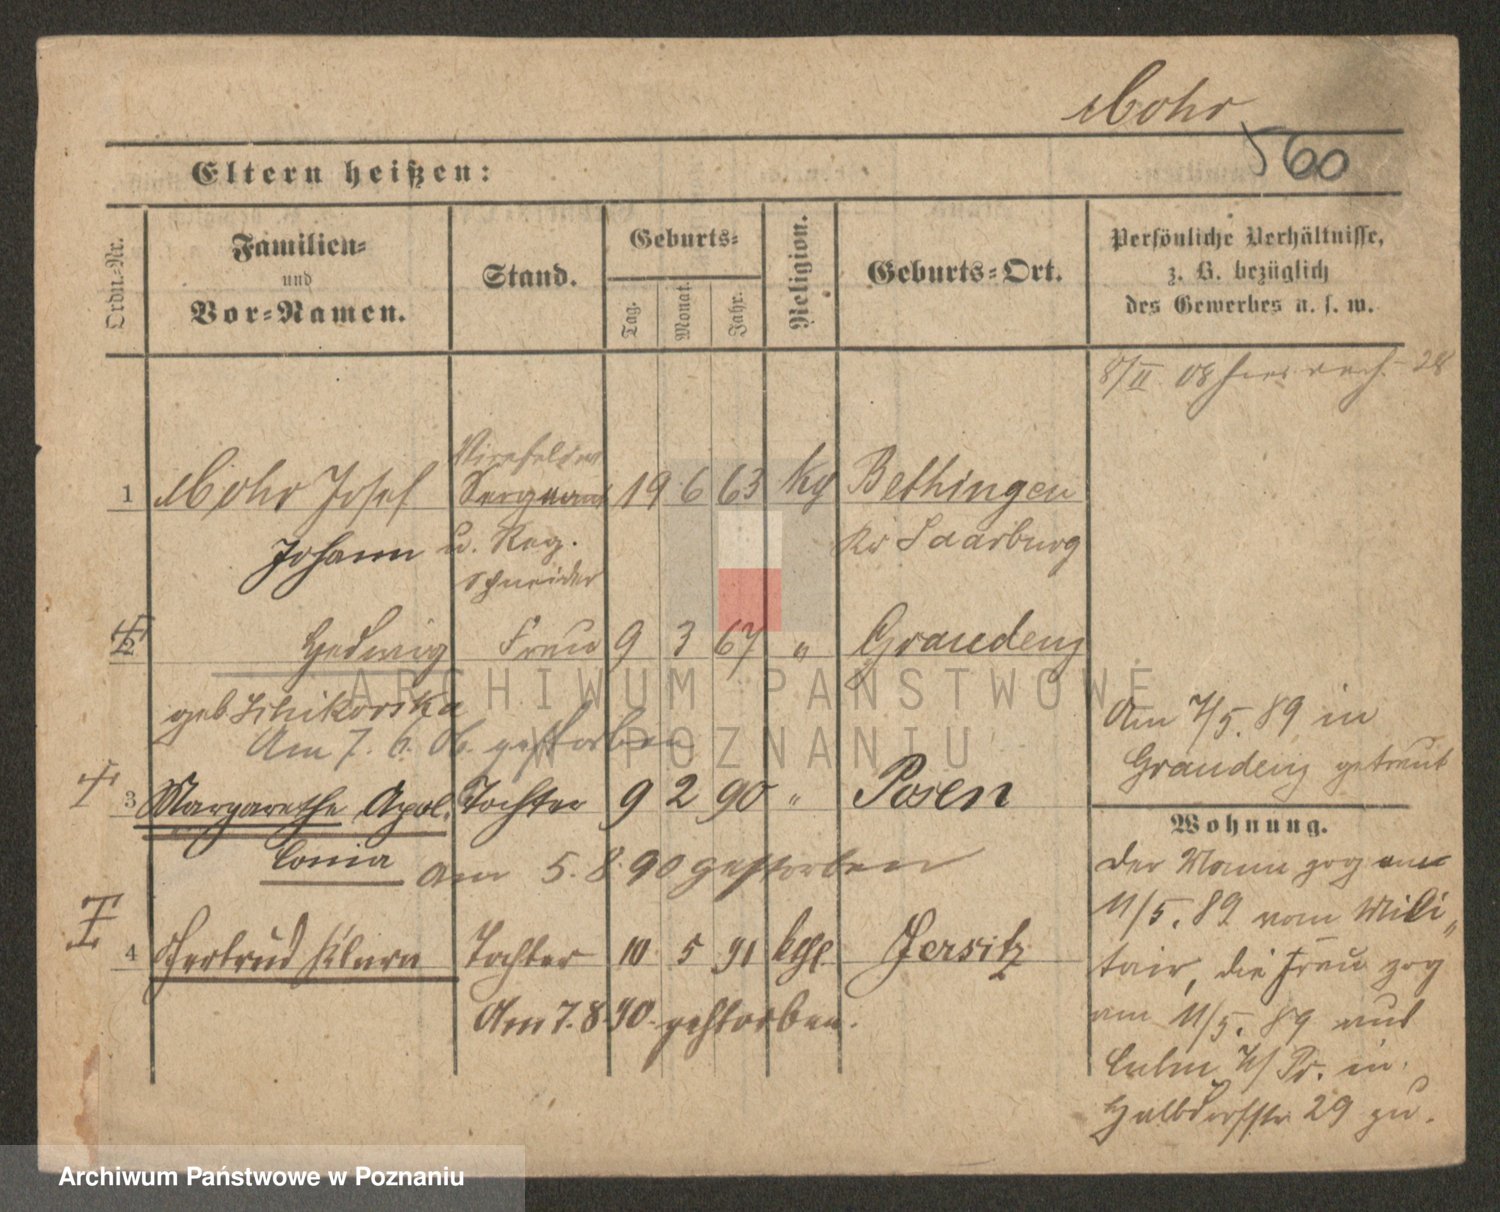 Mohr
560
Eltern heißen:
Ordn.-Nr.
Familien-
und
Vor-Namen.
Stand.
Geburts-
Tag.
Monat.
Jahr.
Religion.
Geburts-Ort.
Persönliche Verhältnisse,
z. B. bezüglich
des Gewerbes u. s. w.
8/II. 08
1 Mohr Josef Sergeant 19 6 63 kg Bethingen
Johann u. Reg. Kr Saarburg
schneider
2 Hedwig Frau 9 3 67 " Graudenz
geb.
Am 7. 6. 06. gestorben
Am 7/5. 89 in
Graudenz getraut
3 Margarethe Apol- Tochter 9 2 90 " Posen
lonia am 5. 8. 90 gestorben
4 Gertrud Klara Tochter 10 5 91 kghl. Jersitz
Am 7. 8. 90. gestorben.
Wohnung.
Der Mann zog am
11/5. 89 vom Mili„
tair, die Frau zog
am 11/5. 89 aus
Culm W/Pr. in
Halbdorfstr 29 zu.
ARCHIWUM PAŃSTWOWE
W POZNANIU
Archiwum Państwowe w Poznaniu